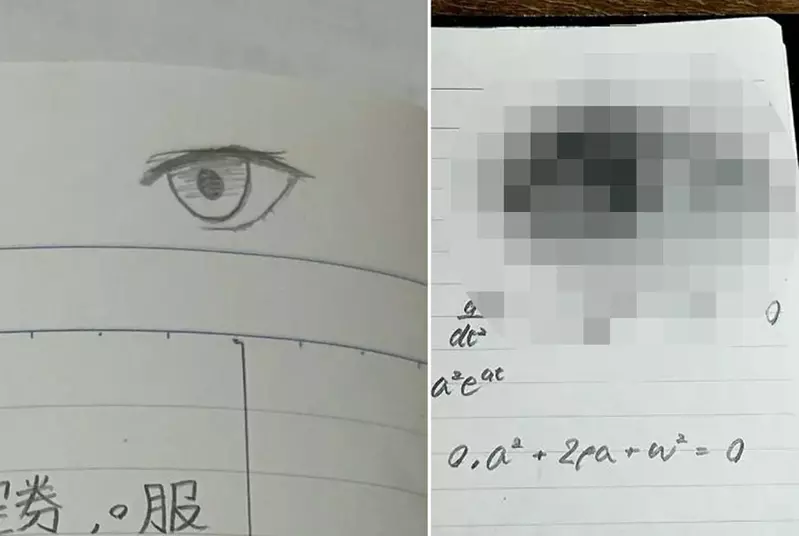 券,。服
dt²
0
a²eᵃᵗ
0, a² + 2ρa + ω² = 0